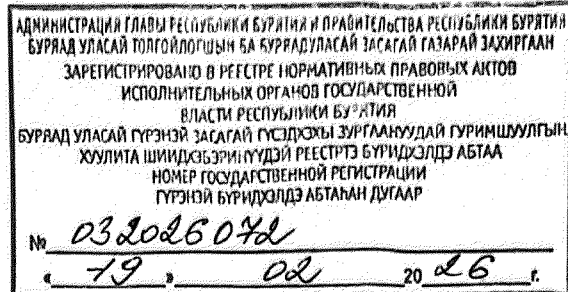 АДМИНИСТРАЦИЯ ГЛАВЫ РЕСПУБЛИКИ БУРЯТИЯ И ПРАВИТЕЛЬСТВА РЕСПУБЛИКИ БУРЯТИЯ
БУРЯАД УЛАСАЙ ТОЛГОЙЛОГШЫН БА БУРЯАД УЛАСАЙ ЗАСАГАЙ ГАЗАРАЙ ЗАХИРГААН
ЗАРЕГИСТРИРОВАНО В РЕЕСТРЕ НОРМАТИВНЫХ ПРАВОВЫХ АКТОВ
ИСПОЛНИТЕЛЬНЫХ ОРГАНОВ ГОСУДАРСТВЕННОЙ
ВЛАСТИ РЕСПУБЛИКИ БУРЯТИЯ
БУРЯАД УЛАСАЙ ГҮРЭНЭЙ ЗАСАГАЙ ГҮЙСЭДХЭХЫ ЗУРГААНУУДАЙ ГУРИМШУУЛГЫН
ХУУЛИТА ШИИДХЭБЭРИНҮҮДЭЙ РЕЕСТРТЭ БҮРИДХЭЛДЭ АБТАА
НОМЕР ГОСУДАРСТВЕННОЙ РЕГИСТРАЦИИ
ГҮРЭНЭЙ БҮРИДХЭЛДЭ АБТАҺАН ДУГААР
№ 032026072
« 19 » 02 20 26 г.